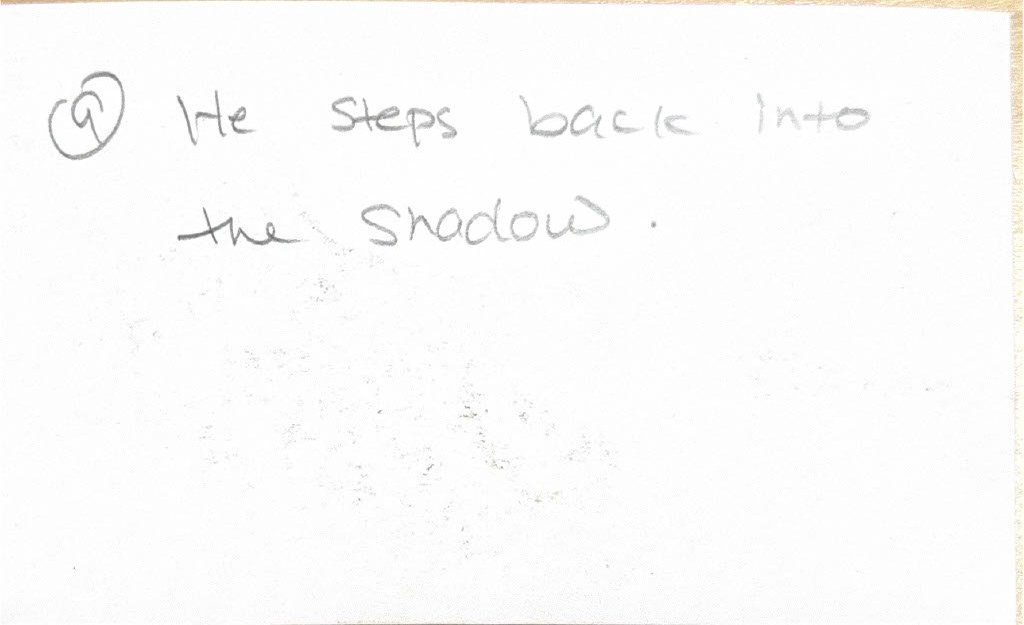 9 He steps back into
the shadow.